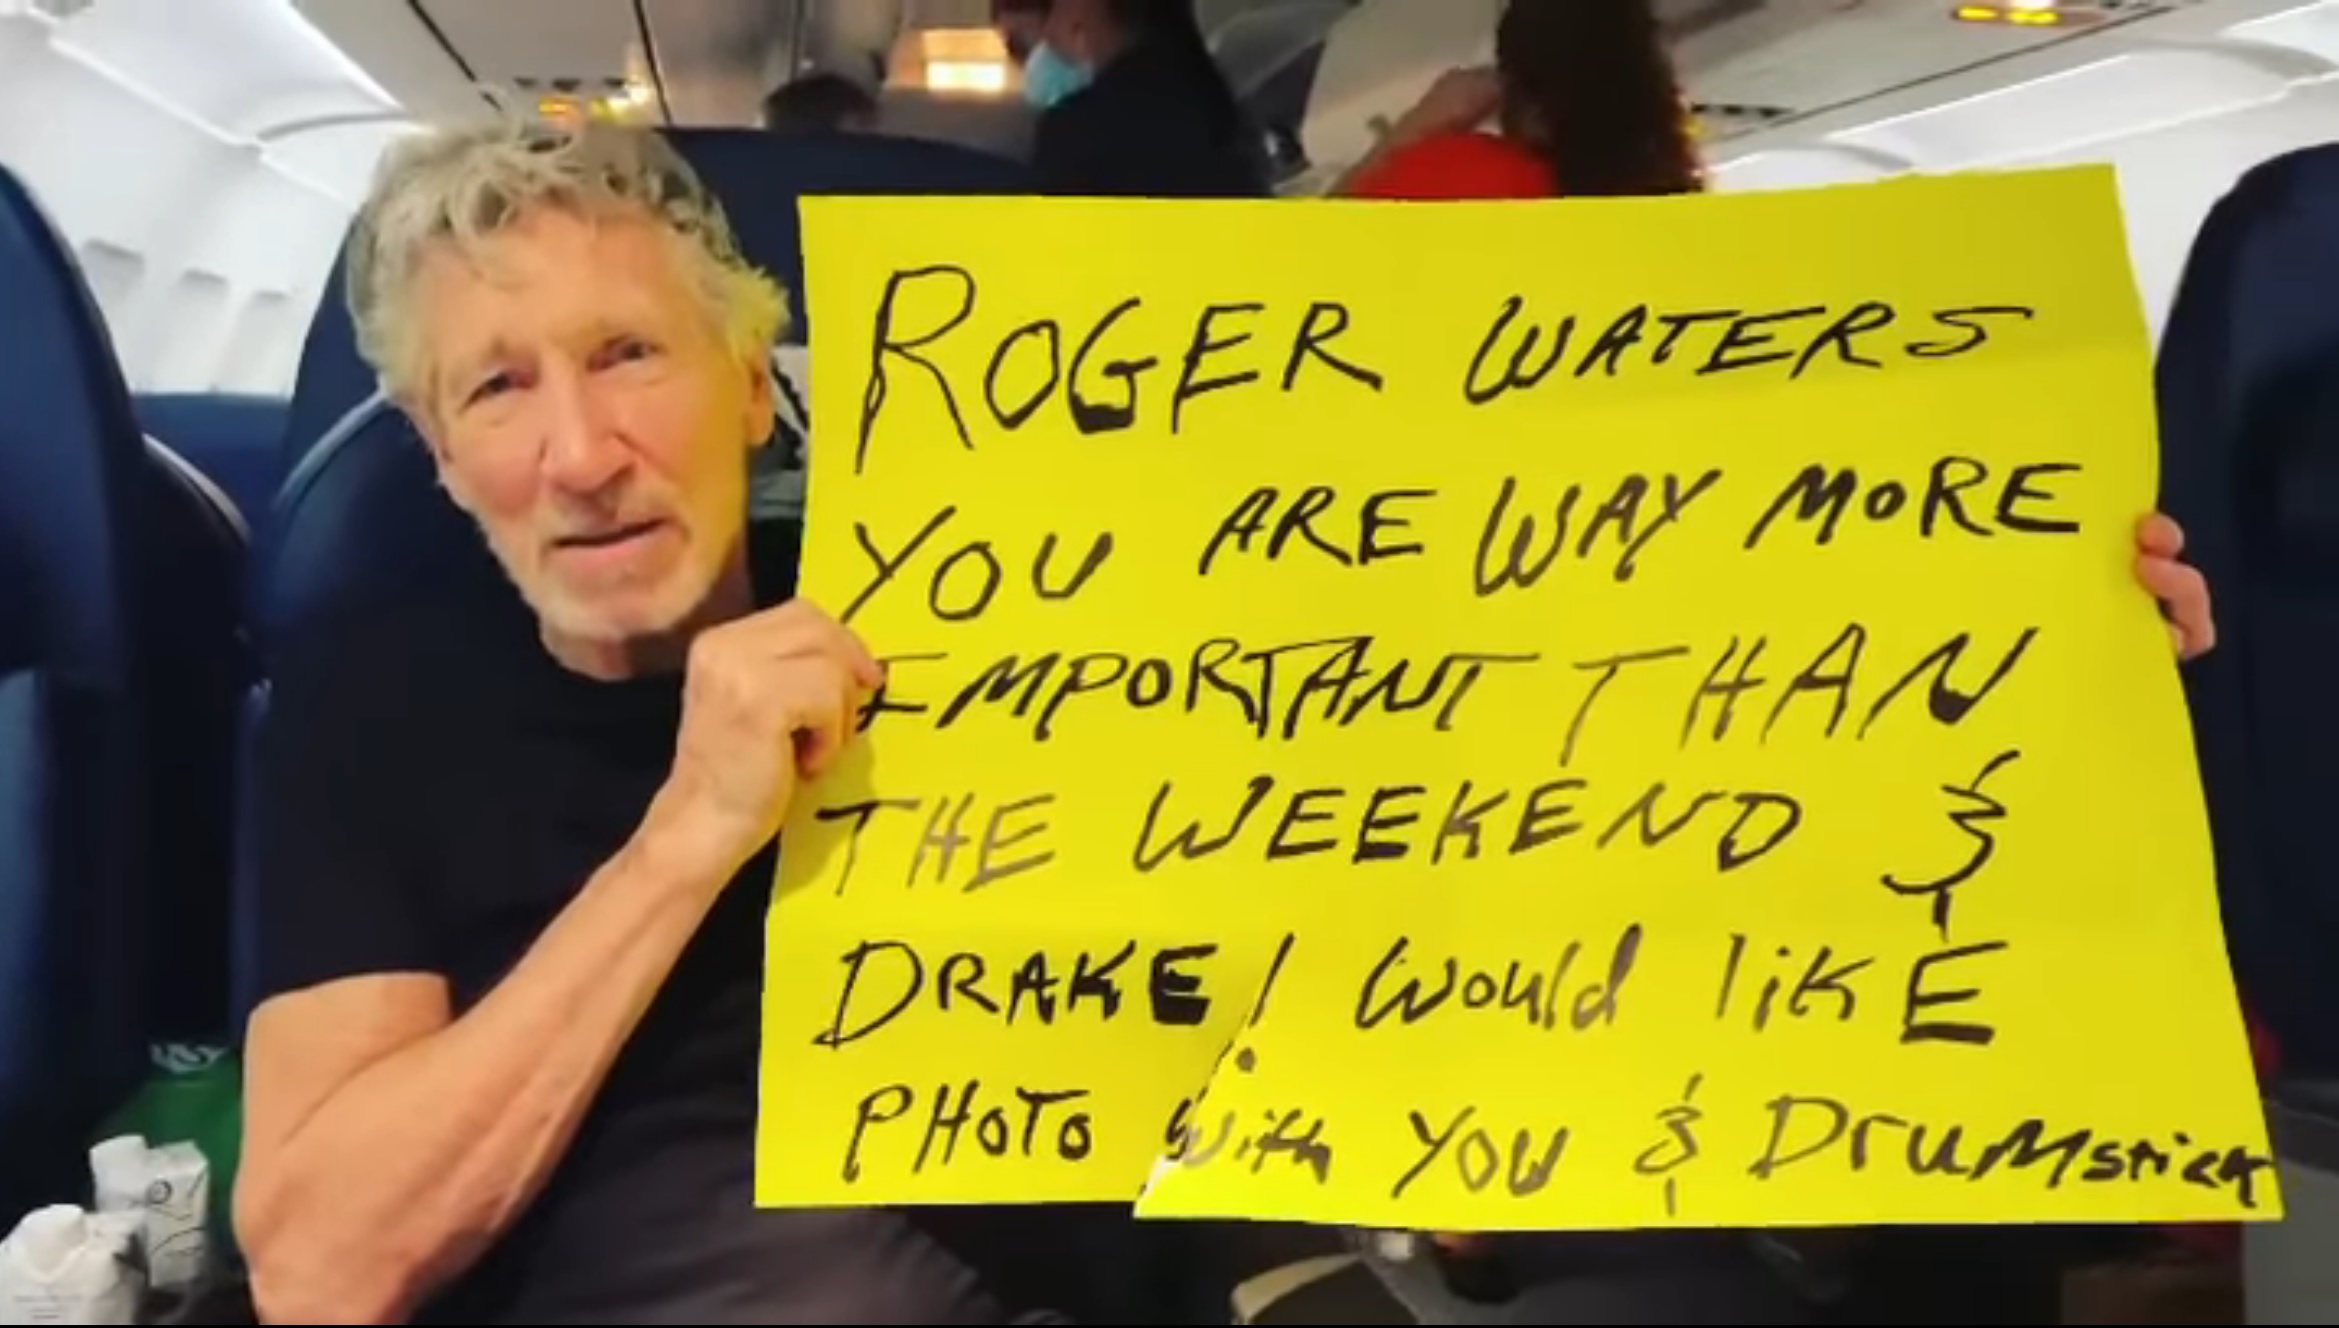 ROGER WATERS
YOU ARE WAY MORE
IMPORTANT THAN
THE WEEKEND &
DRAKE! Would likE
PHOTO with YOU & DruMstick